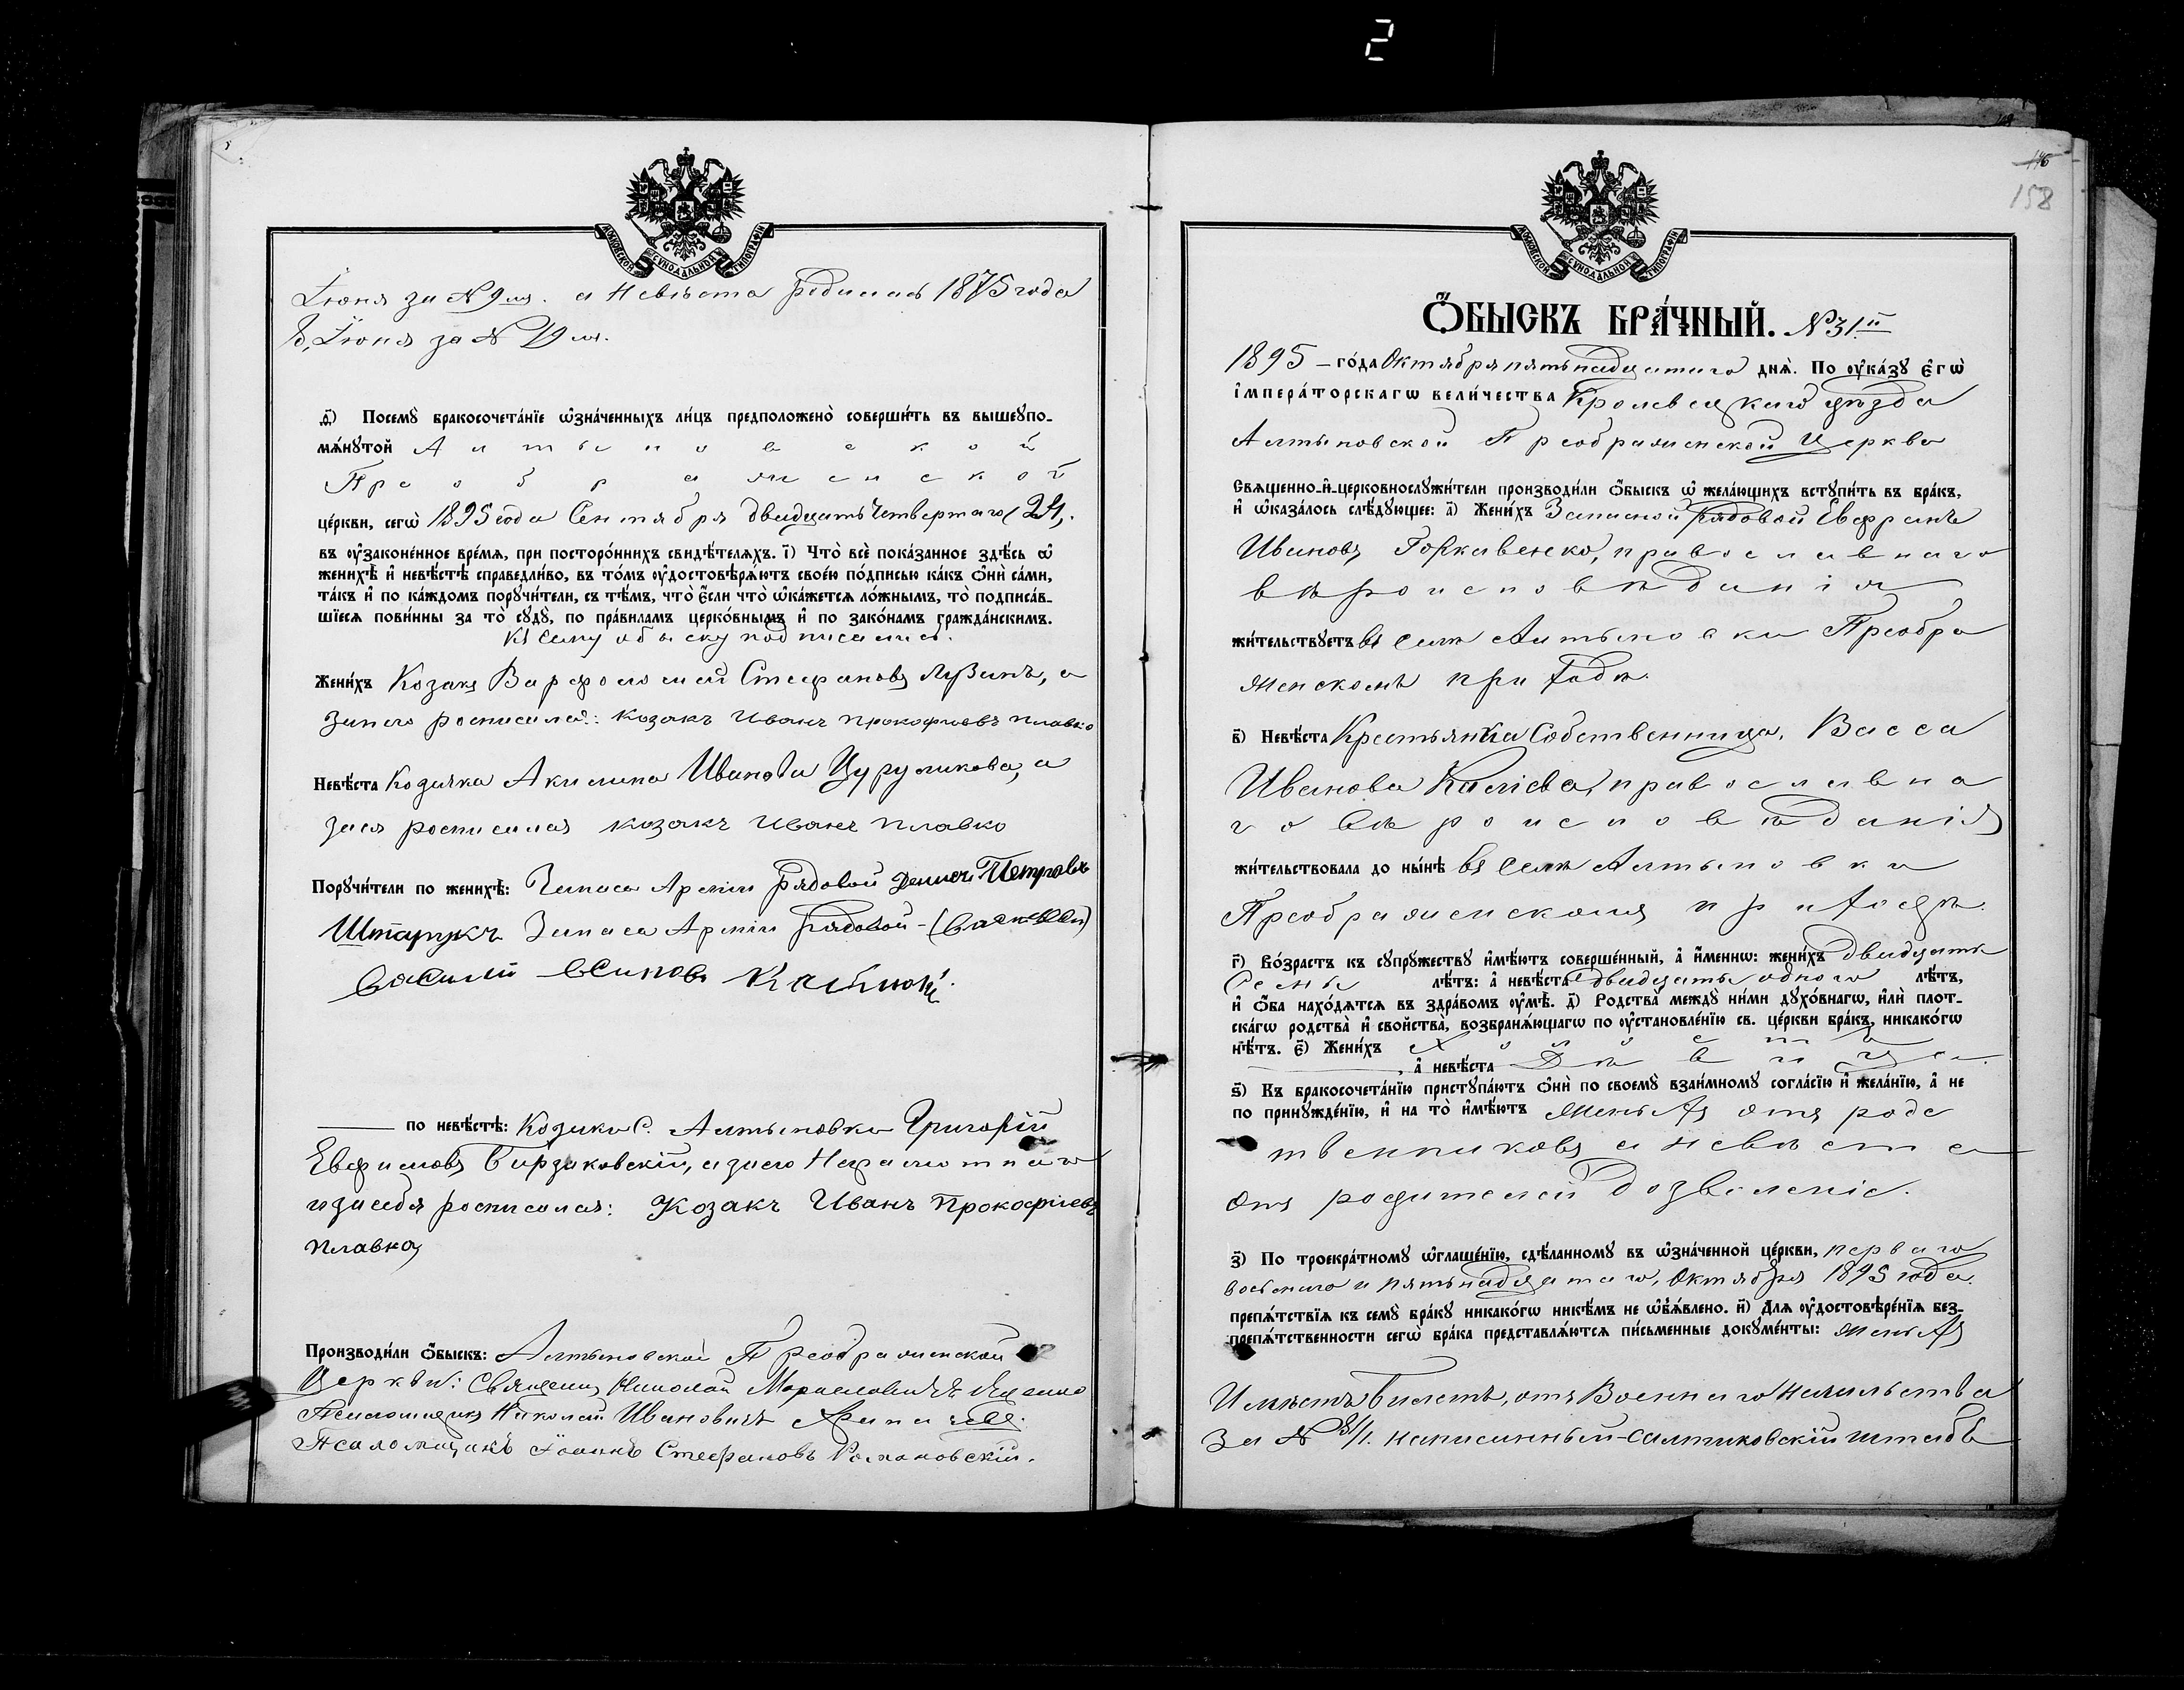 2
Іюня за № 9мъ. а Невѣста родилась 1875 года
8, Іюня за № 19мъ.
Ѳ҃) Посемꙋ̀ бракосочета́нїе ѡ҆зна́ченныхъ ли́цъ предположено̀ соверши́ть въ вышеꙋпо-
мѧ́нꙋтой Алтыновской
Преображенской
це́ркви, сегѡ̀ 1895 года Сентября двадцать четвертаго (24,.
въ ᲂу҆законе́нное вре́мѧ, при посторо́ннихъ свидѣ́телѧхъ. і҃) Что̀ всѐ пока́занное здѣ́сь ѡ҆
женихѣ̀ и҆ невѣ́стѣ справедли́во, въ то́мъ ᲂу҆достовѣрѧ́ютъ свое́ю по́дписью ка́къ ѻ҆нѝ са́ми,
та́къ и҆ по ка́ждомъ порꙋчи́тели, съ тѣ́мъ, что̀ є҆́сли что̀ ѡ҆ка́жетсѧ ло́жнымъ, то̀ подписа́в-
шїесѧ пови́нны за то̀ сꙋдꙋ̀, по пра́виламъ церко́внымъ и҆ по зако́намъ гражда́нскимъ.
Къ сему обыску подписались.
Жени́хъ Козакъ Варфоломей Стефановъ Лузанъ, а
занего росписался: козакъ Иванъ Прокофиевъ Плавко
Невѣ́ста Козачка Акилина Иванова Цуруликова, а
зася росписался козакъ Иванъ Плавко
Порꙋчи́тели по женихѣ̀: Запаса Арміи рядовой Денисъ Петровъ
Запаса Арміи рядовой
Василий Осиповъ
по невѣ́стѣ: Козаки С. Алтыновки Григорій
Евфимовъ Бирзаковскій, а занего Неграмотнаго
изасебя росписался: Козакъ Иванъ Прокофиевъ
Плавко,
Производи́ли ѻ҆́быскъ: Алтыновской Преображенской
Церкви: Священ. Николай
Псаломщикъ Николай Ивановичъ
Псаломщикъ Іоаннъ Стефановъ Романовскій.
158
Ѻ҆́БЫСКЪ БРА́ЧНЫЙ. № 31.й
1895 – го́да Октября пятьнадцатаго днѧ̀. По ᲂу҆ка́зꙋ є҆гѡ̀
і҆мпера́торскагѡ вели́чества Кролевецкаго уѣзда
Алтыновской Преображенской Церкви
Свѧщенно-и҆-церковнослꙋжи́тели производи́ли ѻ҆́быскъ ѡ҆ жела́ющихъ встꙋпи́ть въ бра́къ,
и҆ ѡ҆каза́лось слѣ́дꙋющее: а҃) Жени́хъ Запасной рядовой Евфранъ
Ивановъ Горкавенко, православнаго
вѣроисповѣданія
жи́тельствꙋетъ въ селѣ Алтыновки Преобра
женскомъ приходѣ.
в҃) Невѣ́ста Крестьянка Собственница, Васса
Иванова православна
го вѣроисповѣданія
жи́тельствовала до ны́нѣ въ селѣ Алтыновки
Преображенскомъ приходѣ.
г҃) Во́зрастъ къ сꙋпрꙋ́жествꙋ и҆мѣ́ютъ соверше́нный, а҆ и҆́меннѡ: жени́хъ двадцать
семь лѣ́тъ: а҆ невѣ́ста двадцать одного лѣ́тъ,
и҆ ѻ҆́ба нахо́дѧтсѧ въ здра́вомъ ᲂу҆мѣ̀. д҃) Родства̀ междꙋ̀ ни́ми дꙋхо́внагѡ, и҆лѝ плот-
ска́гѡ родства̀ и҆ сво́йства̀, возбранѧ́ющагѡ по ᲂу҆становле́нїю св. це́ркви бра́къ, никако́гѡ
нѣ́тъ. є҃) Жени́хъ холостъ
, а҆ невѣ́ста Дѣвица.
ѕ҃) Къ бракосочета́нїю пристꙋпа́ютъ ѻ҆нѝ по своемꙋ̀ взаи́мномꙋ согла́сїю и҆ жела́нїю, а҆ не
по принꙋжде́нїю, и҆ на то̀ и҆мѣ́ютъ женихъ отъ родс
твенниковъ а невѣста
отъ родителей дозволеніе.
з҃) По троекра́тномꙋ ѡ҆глаше́нїю, сдѣ́ланномꙋ въ ѡ҆зна́ченной це́ркви, перваго
восьмаго и пятьнадцатаго, Октября 1895 года.
препѧ́тствїѧ къ семꙋ̀ бра́кꙋ никако́гѡ никѣ́мъ не ѡ҆б̾ѧ́влено. и҃) Длѧ ᲂу҆достовѣре́нїѧ без-
препѧ́тственности сегѡ̀ бра́ка представлѧ́ютсѧ пи́сьменные докꙋме́нты: женихъ
Имѣетъ билетъ, отъ Военнаго Начальства
За № 81/1. написанный-Салтиковскій штабъ